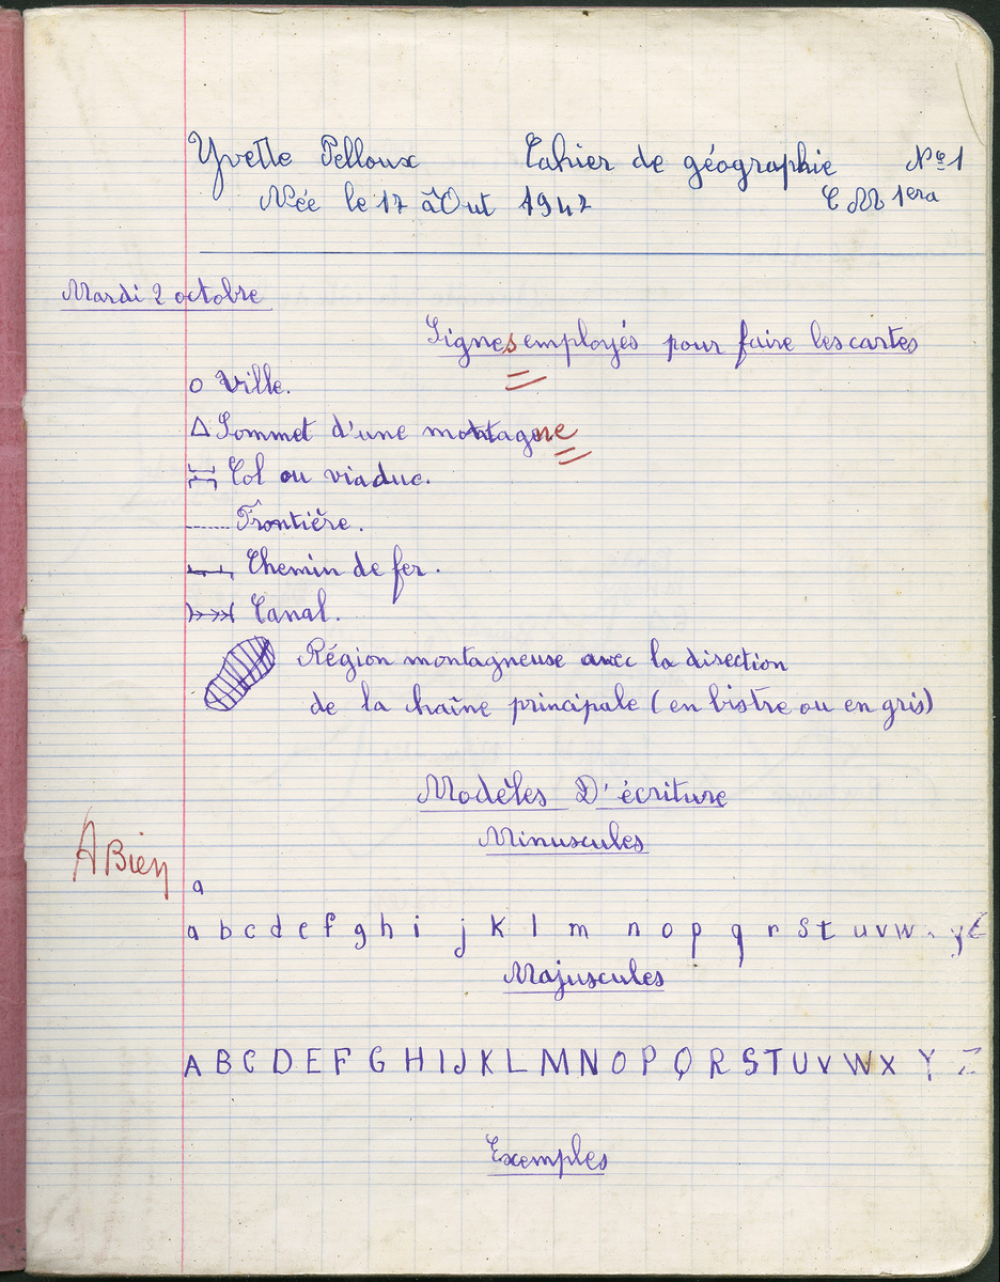 Yvette Pelloux Cahier de géographie N° 1
Née le 17 âOut 1947 C M 1era
Mardi 2 octobre
Signes employés pour faire les cartes
Ville.
Sommet d'une montagne
Col ou viaduc.
Frontière.
Chemin de fer.
Canal.
Région montagneuse avec la direction
de la haîne principale (en bistre ou en gris)
Modèles D'écriture
Minuscules
A Bien
a
a b c d e f g h i j k l m n o p q r s t u v w y
Majuscules
A B C D E F G H I J K L M N O P Q R S T U V W X Y Z
Exemples